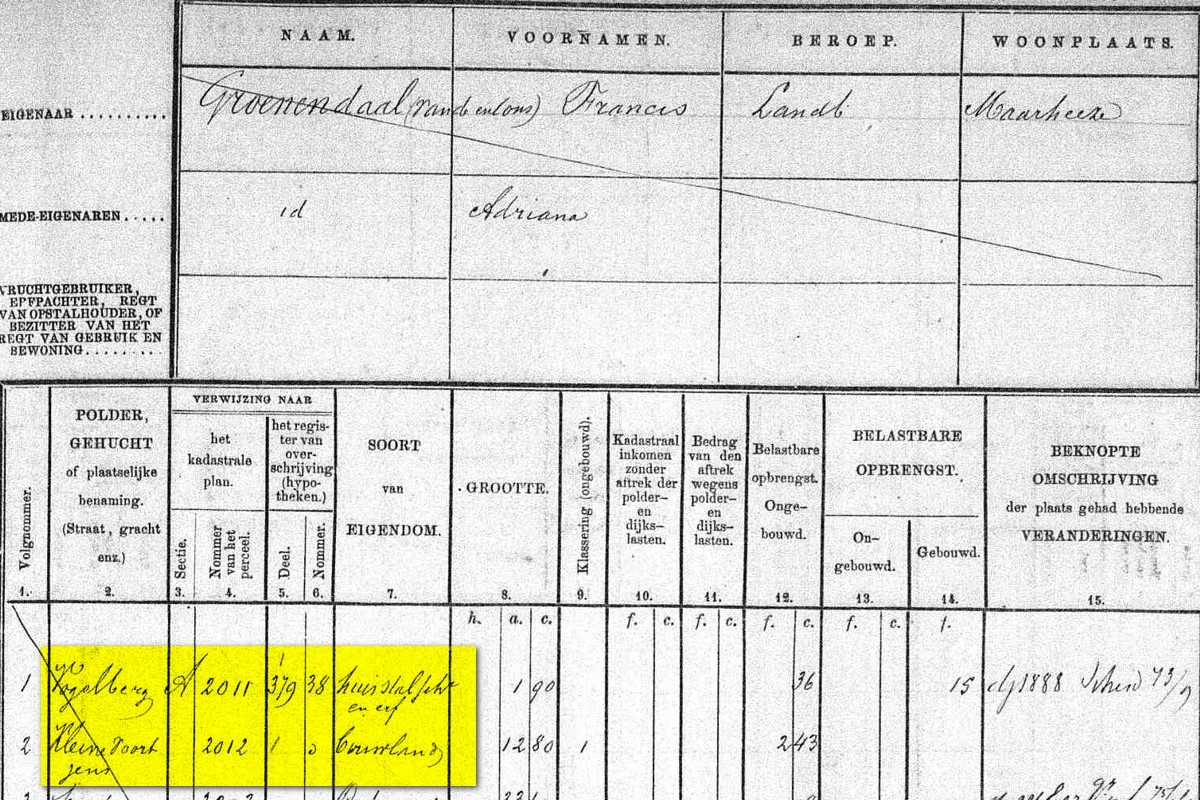 NAAM. VOORNAMEN. BEROEP. WOONPLAATS.
EIGENAAR .......... Groenendaal (van de en cons) Francis Landb Maarheeze
MEDE-EIGENAREN ..... id Adriana
VRUCHTGEBRUIKER,
ERFPACHTER, REGT
VAN OPSTALHOUDER, OF
BEZITTER VAN HET
REGT VAN GEBRUIK EN
BEWONING.........
Volgnommer.
1.
POLDER,
GEHUCHT
of plaatselijke
benaming.
(Straat, gracht
enz.)
2.
VERWIJZING NAAR
het
kadastrale
plan.
Sectie.
3.
Nommer
van het
perceel.
4.
het regis-
ter van
over-
schrijving
(hypo-
theken.)
Deel.
5.
Nommer.
6.
SOORT
van
EIGENDOM.
7.
GROOTTE.
8.
Klassering (ongebouwd).
9.
Kadastraal
inkomen
zonder
aftrek der
polder-
en
dijks-
lasten.
10.
Bedrag
van den
aftrek
wegens
polder-
en
dijks-
lasten.
11.
Belastbare
opbrengst.
Onge-
bouwd.
12.
BELASTBARE
OPBRENGST.
On-
gebouwd.
13.
Gebouwd.
14.
BEKNOPTE
OMSCHRIJVING
der plaats gehad hebbende
VERANDERINGEN.
15.
h. a. c. f. c. f. c. f. c. f. c. f.
1 Vogelberg A 2011 379 38 huis stal schr 1 90 36 15 dj 1888 73/9
en erf
2 Kleine Voort 2012 Bouwland 12 80 1 2 43
jens